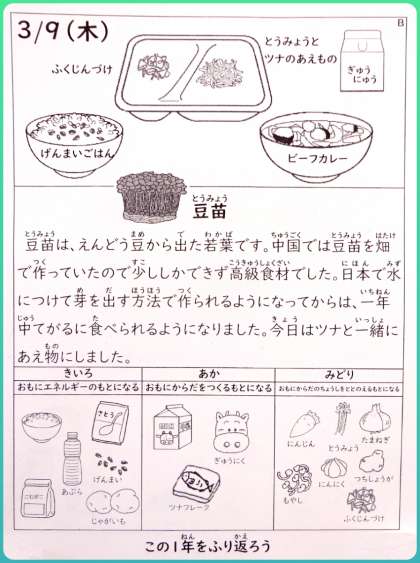 3/9(木)
B
ふくじんづけ
とうみょうと
ツナのあえもの
ぎゅう
にゅう
げんまいごはん
ビーフカレー
豆苗
豆苗は、えんどう豆から出た若葉です。中国では豆苗を畑
で作っていたので少ししかできず高級食材でした。日本で水
につけて芽を出す方法で作られるようになってからは、一年
中てがるに食べられるようになりました。今日はツナと一緒に
あえ物にしました。
きいろ
おもにエネルギーのもとになる
あか
おもにからだをつくるもとになる
みどり
おもにからだのちょうしをととのえるもとになる
さとう
げんまい
あぶら
こむぎこ
じゃがいも
ぎゅうにく
ツナフレーク
にんじん
とうみょう
たまねぎ
もやし
にんにく
つちしょうが
ふくじんづけ
この1年をふり返ろう